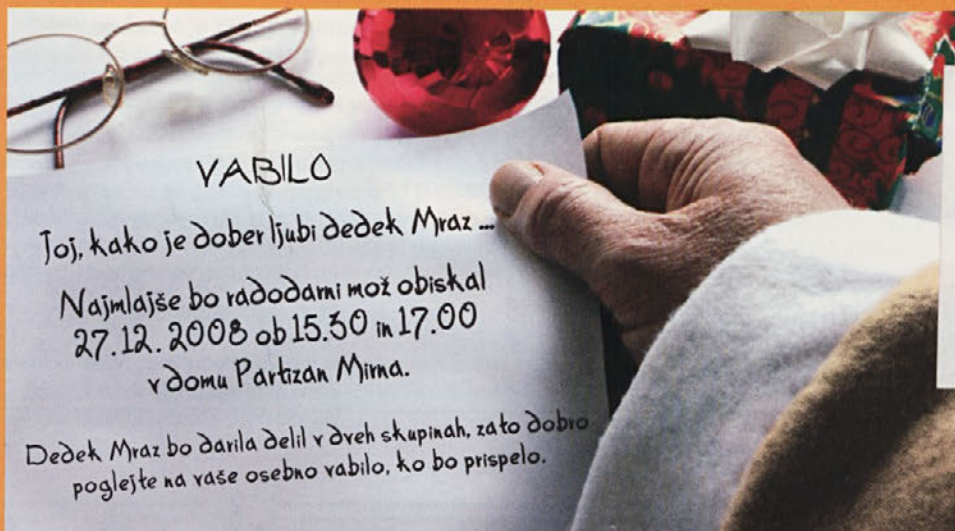 VABILO
Joj, kako je dober ljubi dedek Mraz ...
Najmlajše bo radodarni mož obiskal
27.12.2008 ob 15.30 in 17.00
v domu Partizan Mirna.
Dedek Mraz bo darila delil v dveh skupinah, zato dobro
poglejte na vaše osebno vabilo, ko bo prispelo.